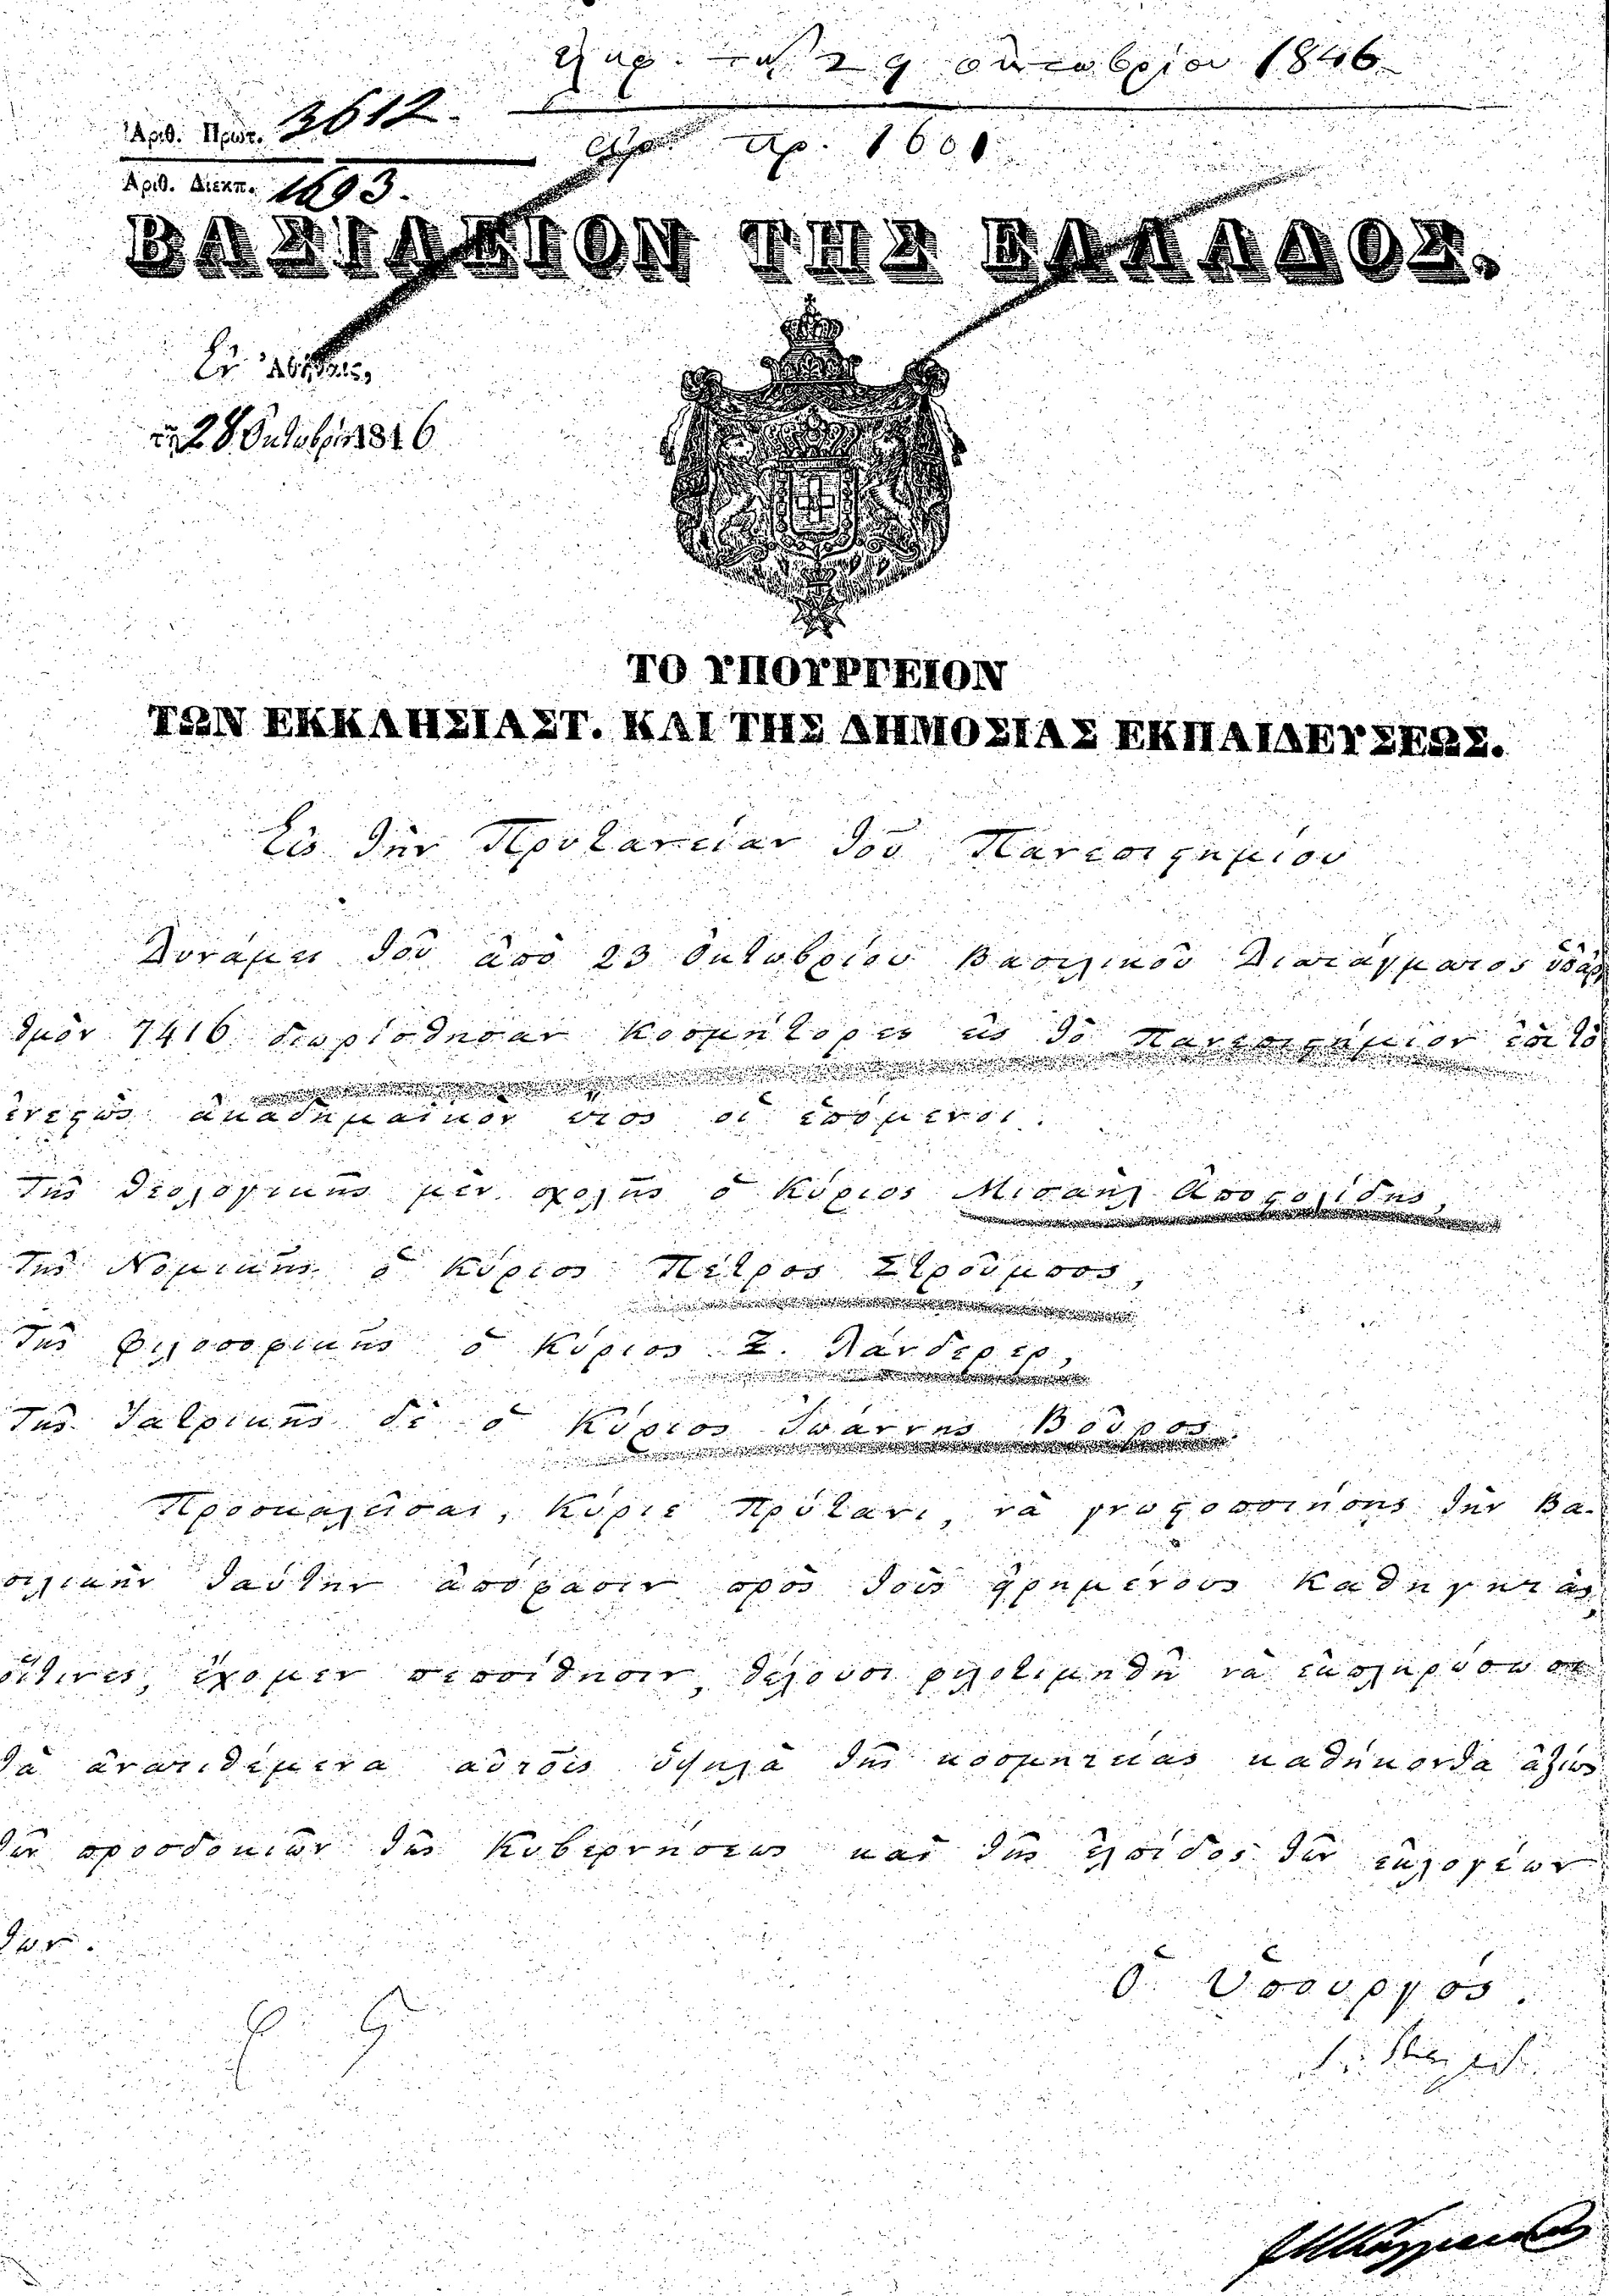 παρ. τῇ 29 ὀκτωβρίου 1846
Ἀριθ. Πρωτ. 3612.
ἀρ. πρ. 1601
Ἀριθ. Διεκπ. 1693.
ΒΑΣΙΛΕΙΟΝ ΤΗΣ ΕΛΛΑΔΟΣ.
Ἐν Ἀθήναις,
τῇ 28 Ὀκτωβρίου 1846
ΤΟ ΥΠΟΥΡΓΕΙΟΝ
ΤΩΝ ΕΚΚΛΗΣΙΑΣΤ. ΚΑΙ ΤΗΣ ΔΗΜΟΣΙΑΣ ΕΚΠΑΙΔΕΥΣΕΩΣ.
Εἰς τὴν Πρυτανείαν τοῦ Πανεπιστημίου
Δυνάμει τοῦ ἀπὸ 23 Ὀκτωβρίου Βασιλικοῦ Διατάγματος ὑπ' ἀρι
θμὸν 7416 διωρίσθησαν Κοσμήτορες εἰς τὸ Πανεπιστήμιον ἐπὶ τὸ
ἐνεστὼς ἀκαδημαϊκὸν ἔτος οἱ ἑπόμενοι.
Τῆς Θεολογικῆς μὲν σχολῆς ὁ Κύριος Μισαὴλ Ἀποστολίδης,
Τῆς Νομικῆς ὁ Κύριος Πέτρος Στροῦμπος,
Τῆς Φιλοσοφικῆς ὁ Κύριος Ξ. Λάνδερερ,
Τῆς Ἰατρικῆς δὲ ὁ Κύριος Ἰωάννης Βοῦρος.
Προσκαλεῖσαι, Κύριε Πρύτανι, νὰ γνωστοποιήσῃς τὴν Βα-
σιλικὴν ταύτην ἀπόφασιν πρὸς τοὺς ᾑρημένους Καθηγητὰς,
οἵτινες, ἔχομεν πεποίθησιν, θέλουσι φιλοτιμηθῆ νὰ ἐκπληρώσωσι
τὰ ἀνατιθέμενα αὐτοῖς ὑψηλὰ τῆς κοσμητείας καθήκοντα ἀξίως
τῶν προσδοκιῶν τῆς Κυβερνήσεως καὶ τῆς ἐλπίδος τῶν ἐκλογέων
των.
Ὁ Ὑπουργός.